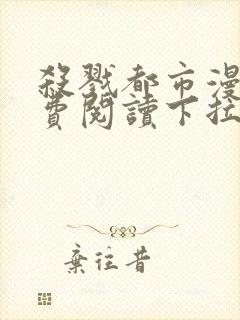 殺戮都市漫
費閱讀下拉
棄往昔